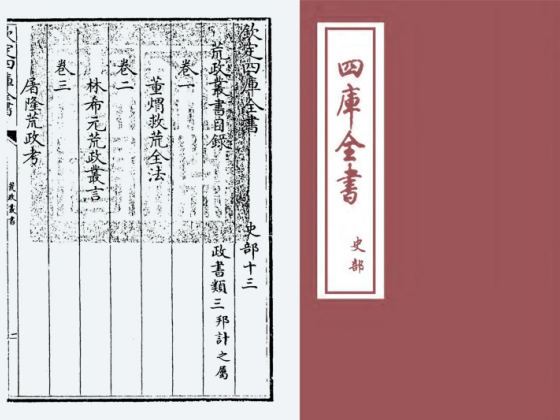 欽定四庫全書
史部十三
荒政叢書目録
政書類三邦計之屬
卷一
董煟救荒全法
卷二
林希元荒政叢言
卷三
屠隆荒政考
欽定四庫全書
荒政叢書
一
四庫全書
史部